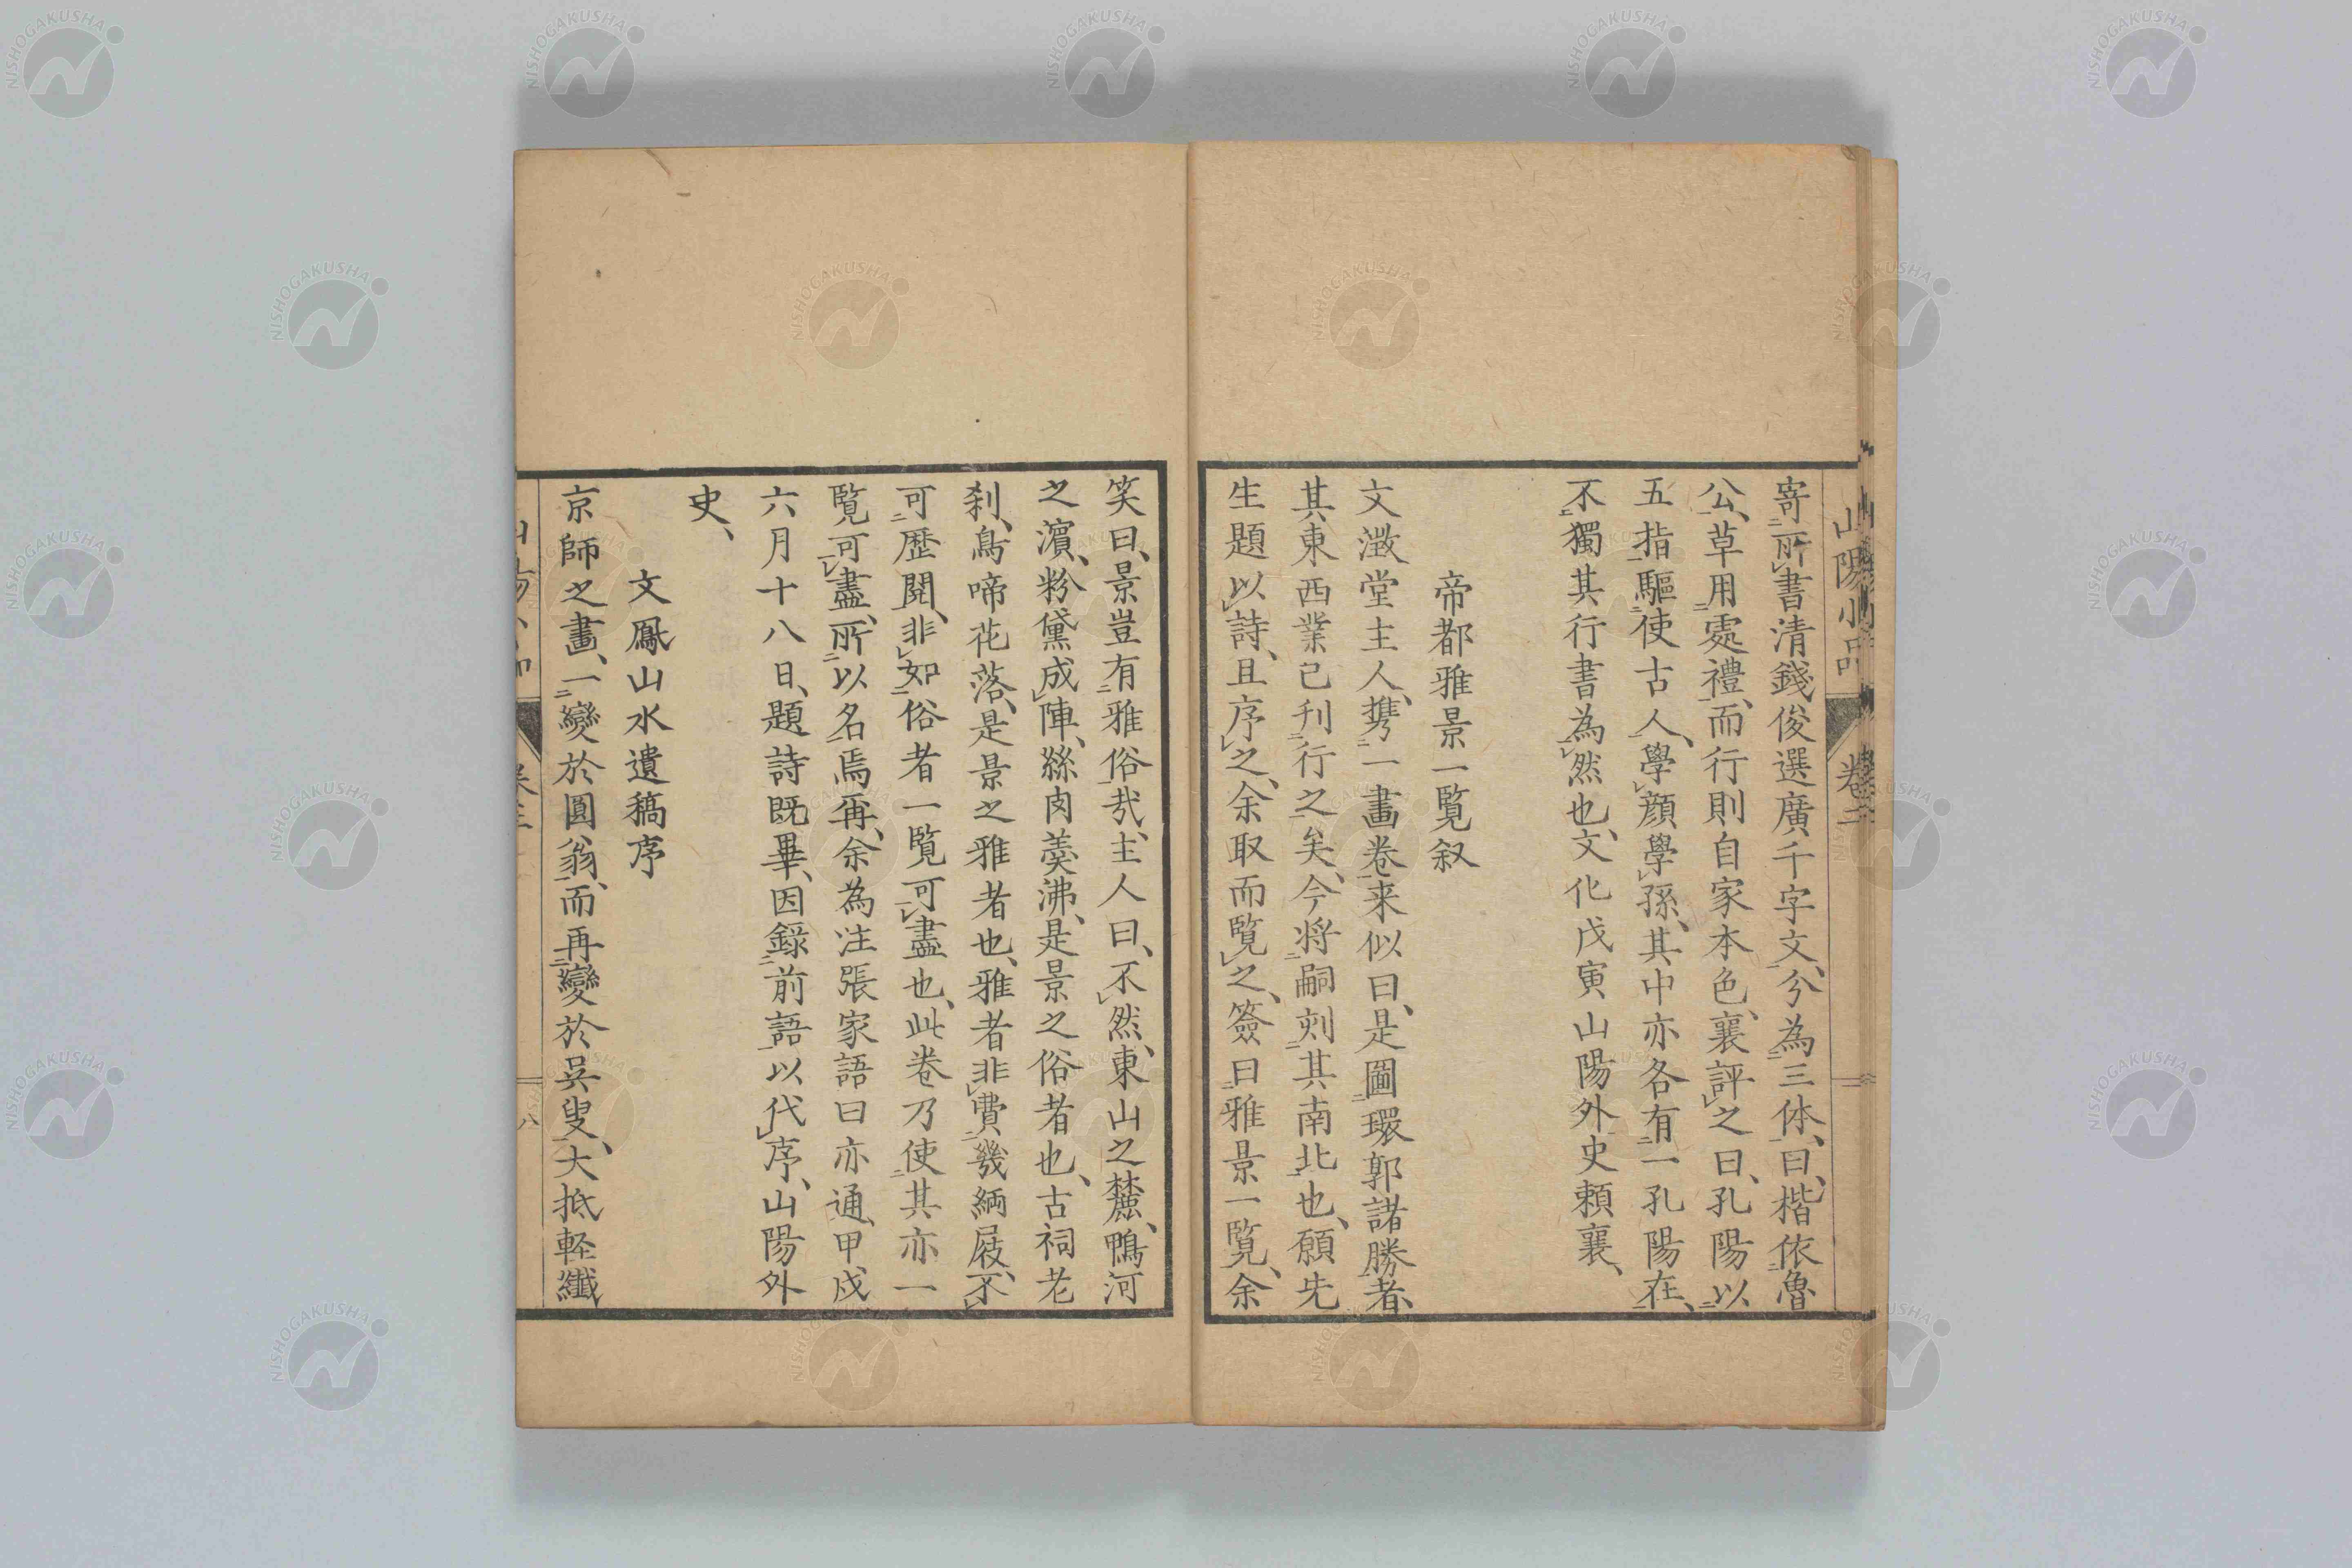 山陽小品 卷二
寄所書清錢俊選廣千字文、分為三体、曰、楷依魯
公、草用處禮、而行則自家本色、襄評之曰、孔陽以
五指驅使古人、學顔學孫、其中亦各有一孔陽在、
不獨其行書為然也、文化戊寅山陽外史頼襄、
帝都雅景一覧叙
文澂堂主人、携一畫卷来似曰、是圖環郭諸勝者、
其東西業已刊行之矣、今将嗣刻其南北也、願先
生題以詩、且序之、余取而覧之、簽曰雅景一覧、余
笑曰、景豈有雅俗哉、主人曰、不然、東山之麓、鴨河
之濵、粉黛成陣、絲肉羹沸、是景之俗者也、古祠老
刹、鳥啼花落、是景之雅者也、雅者非費幾緉屐、不
可歴閲、非如俗者一覧可盡也、此卷乃使其亦一
覧可盡、所以名焉再、余為注張家語曰亦通、甲戌
六月十八日、題詩既畢、因録前語以代序、山陽外
史、
文鳳山水遺稿序
京師之畫、一變於圓翁、而再變於呉叟、大抵軽纖
八
NISHOGAKUSHA